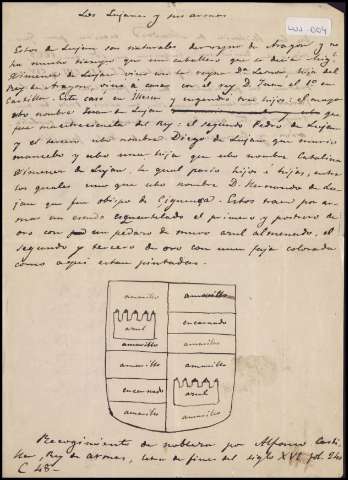 Los Lujanes y sus armas
LUJ-004
Estos de Lujan son naturales del reyno de Aragon y no
ha mucho tiempo que un caballero que se decia Luy
Ximenez de Lujan vino con la reyna Dª Leonor, hija del
Rey de Aragon, vino a casar con el rey D. Juan el 1º en
Castilla. Este casó en Illescas y engendró tres hijos: el mayor
ubo nombre Juan de Lujan y ubo que
fue maestresala del Rey: el segundo Pedro de Lujan
y el tercero ubo nombre Diego de Lujan, que murió
mancebo y ubo una hija que ubo nombre Catalina
Ximenez de Lujan, la qual parió hijos e hijas, entre
los quales uno que ubo nombre D. Hernando de Lu-
jan que fue obispo de Ciguenza. Estos traen por ar-
mas un escudo esquartelado el primero y postrero de
oro con un pedazo de muro azul almenado, el
segundo y tercero de oro con una faja colorada
como aqui estan pintadas.
amarillo
amarillo
azul
encarnado
amarillo
amarillo
amarillo
amarillo
encarnado
azul
amarillo
amarillo
Recogimiento de nobleza por Alfonso Casti-
lla, Rey de armas, letra de fines del siglo XVI fol. 240
C 48-